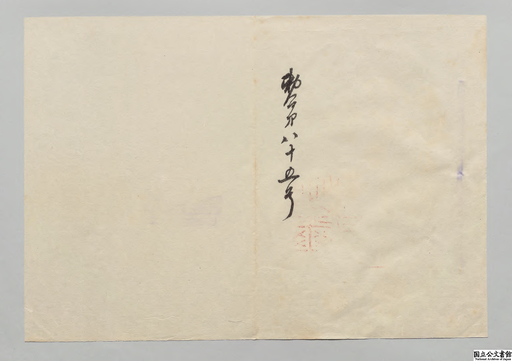 勅令第八十五号
国立公文書館
National Archives of Japan